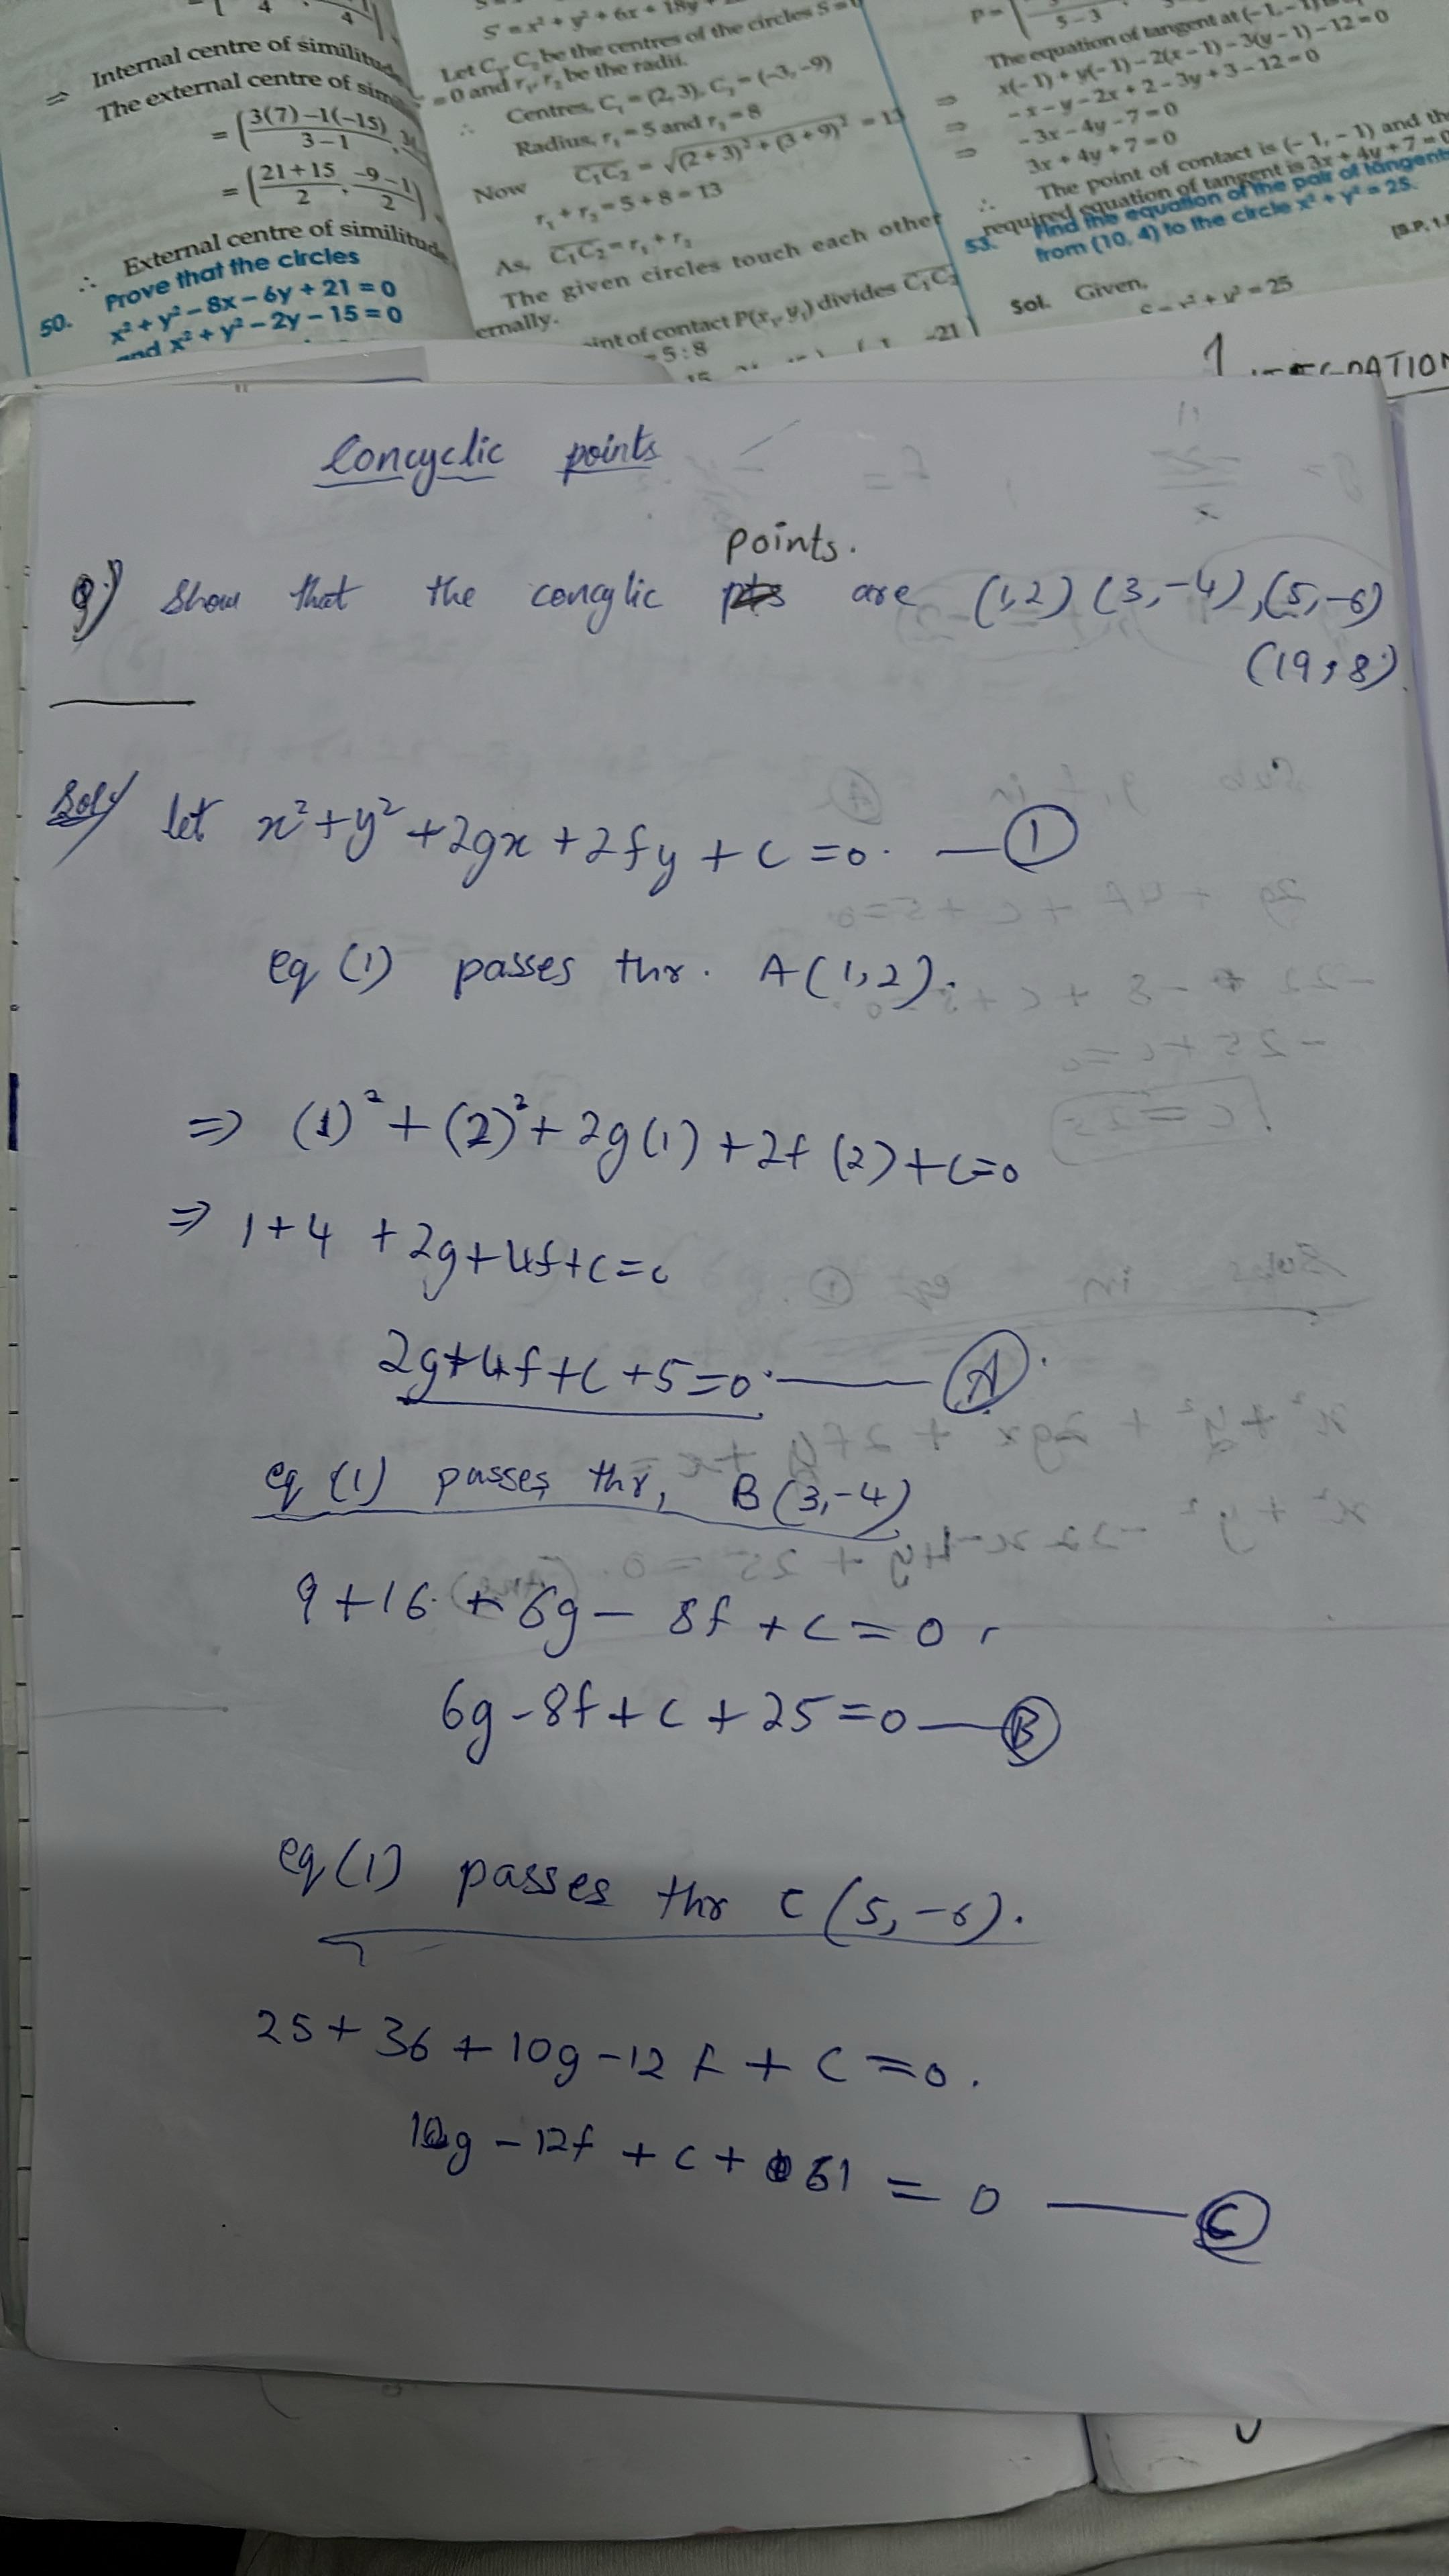 Internal centre of similitud
⇒ The external centre of simi
= (3(7)−1(−15)
3−1
= (21+15 , −9−1)
2 2
∴ External centre of similitud
50. Prove that the circles
x² + y² − 8x − 6y + 21 = 0
and x² + y² − 2y − 15 = 0
S' = x² + y² + 6x + 18y
Let C₁, C₂ be the centres of the circles S =
= 0 and r₁, r₂ be the radii.
∴ Centres, C₁ = (2, 3), C₂ = (−3, −9)
Radius, r₁ = 5 and r₂ = 8
Now C₁C₂ = √(2+3)² + (3+9)² = 13
r₁ + r₂ = 5 + 8 = 13
As, C₁C₂ = r₁ + r₂
The given circles touch each other
ernally.
int of contact P(x₁, y₁) divides C₁C₂
= 5 : 8
−21
5−3
The equation of tangent at (−1, −1)
⇒ x(−1) + y(−1) − 2(x−1) − 3(y−1) − 12 = 0
⇒ −x − y − 2x + 2 − 3y + 3 − 12 = 0
⇒ −3x − 4y − 7 = 0
3x + 4y + 7 = 0
∴ The point of contact is (−1, −1) and the
required equation of tangent is 3x + 4y + 7 = 0
53. Find the equation of the pair of tangent
from (10, 4) to the circle x² + y² = 25.
Sol. Given,
x² + y² = 25
Concyclic points
points.
Q) Show that the concylic pts are (1,2) (3,-4),(5,-6)
(19,8).
Sol/ let x²+y²+2gx+2fy+c=0. — ①
eq (1) passes thr. A(1,2).
⇒ (1)²+(2)²+2g(1)+2f(2)+c=0
⇒ 1+4 +2g+4f+c=0
2g+4f+c+5=0. — Ⓐ.
eq (1) passes thr, B(3,-4)
9+16 + 6g - 8f + c = 0
6g-8f+c+25=0 — Ⓑ
eq(1) passes thr C(5,-6).
25+36+10g-12f+c=0.
10g-12f+c+61 = 0 — Ⓒ